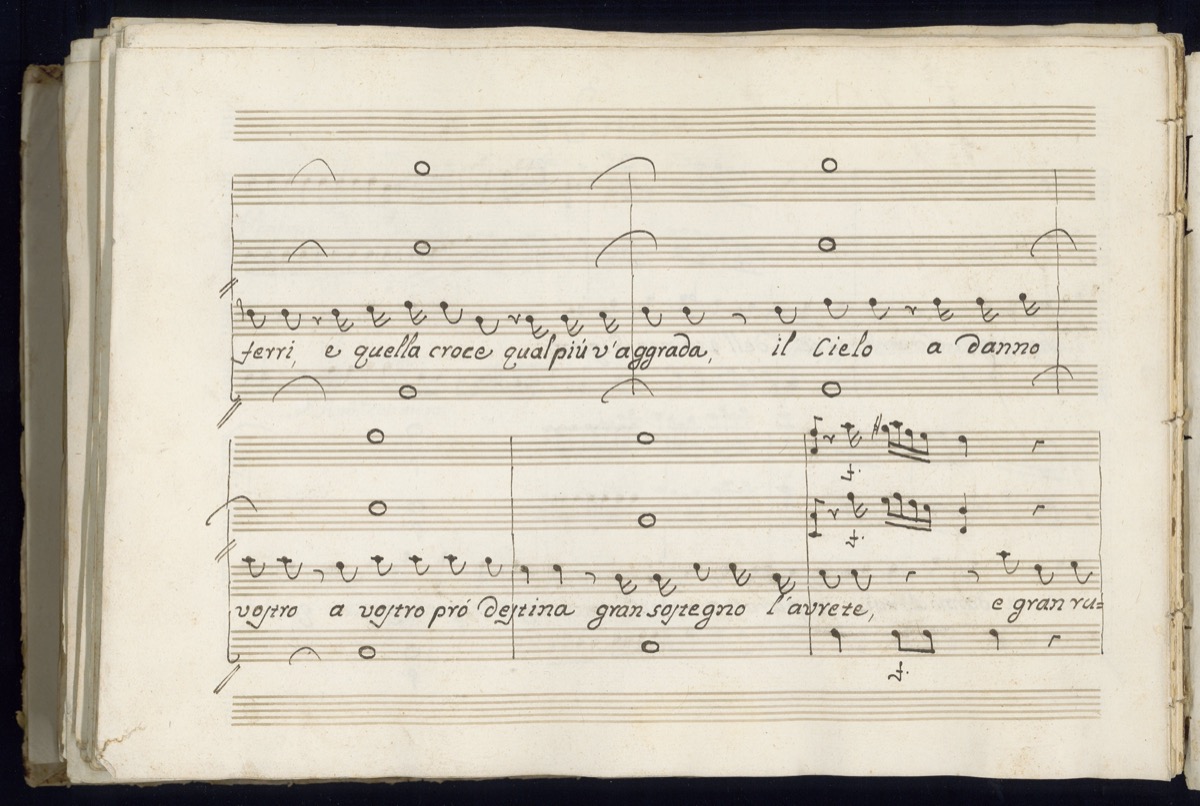 ferri, e quella croce qual più v'aggrada, il Cielo a danno
vostro a vostro pró destina gran sostegno l'avrete, e gran ru=